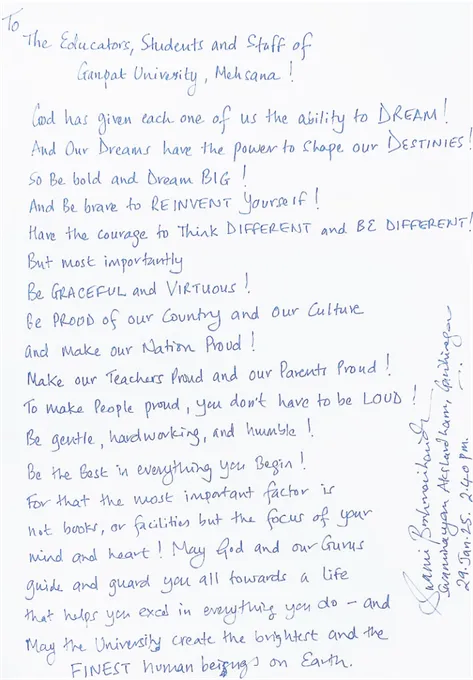 To
The Educators, Students and Staff of
Ganpat University, Mehsana !
God has given each one of us the ability to DREAM!
And Our Dreams have the power to Shape our DESTINIES!
So Be bold and Dream BIG !
And Be brave to REINVENT Yourself !
Have the courage to Think DIFFERENT and BE DIFFERENT!
But most importantly
Be GRACEFUL and VIRTUOUS !
Be PROUD of our Country and our Culture
and make our Nation Proud !
Make our Teachers Proud and our Parents Proud !
To make People proud, you don't have to be LOUD !!
Be gentle, hardworking, and humble !
Be the Best in everything you Begin !
For that the most important factor is
not books, or facilities but the focus of your
mind and heart ! May God and our Gurus
guide and guard you all towards a life
that helps you excel in everything you do – and
May the University create the brightest and the
FINEST human beigngs on Earth.
Swaminarayan Akshardham, Gandhinagar
29.Jan.25. 2.40 pm.